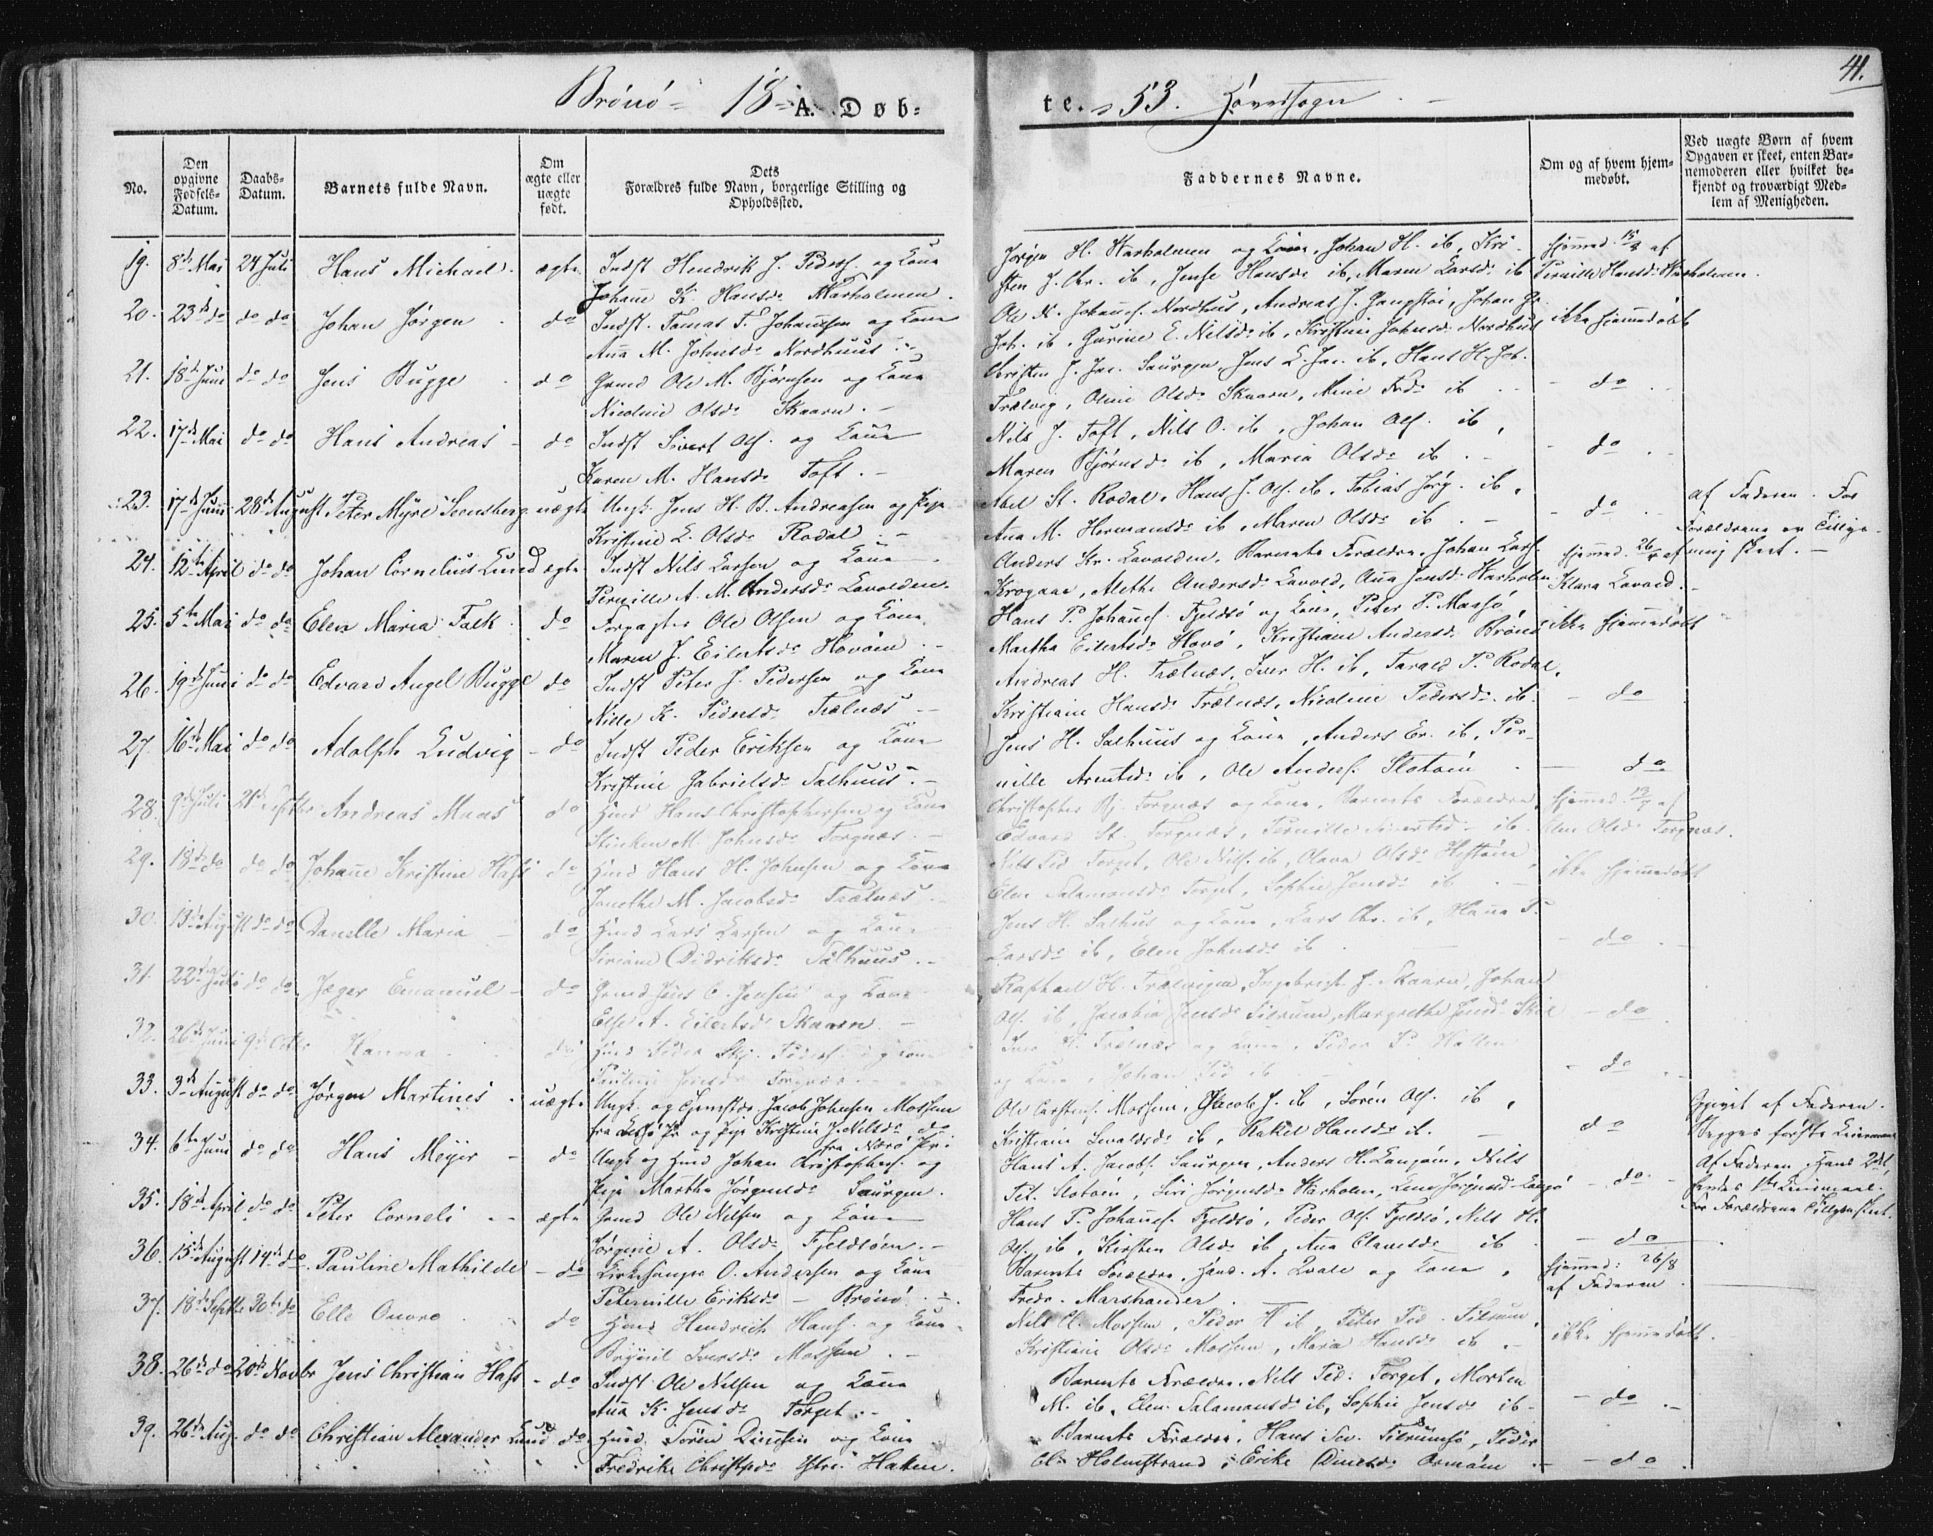 41.
Brönö 18 A. Døb-
te. 53. Hovedsogn
No.
Den opgivne Fødsels-Datum.
Daabs-Datum.
Barnets fulde Navn.
Om ægte eller uægte født.
Dets Forældres fulde Navn, borgerlige Stilling og Opholdssted.
Faddernes Navne.
Om og af hvem hjem-medøbt.
Ved uægte Børn af hvem Opgaven er skeet, enten Bar-nemoderen eller hvilket be-kjendt og troværdigt Med-lem af Menigheden.
19. 8de Mai 24 Juli Hans Michael. ægte Indst Hendrik J. Peders. og Kone
Johane K. Hansd. Marholmen.
Jörgen H. Marholmen og Kone, Johan H. ib, Kri-
sten J. Chr. ib, Jense Hansd. ib, Maren Larsd. ib
Hjemmed. af
Pernille Hansd. Marholmen.
20. 23de do do do Johan Jörgen do Indst. Tomas T. Johansen og Kone
Ana M. Johnsd. Nordhuus.
Ole N. Johans. Nordhus, Andreas J. Gangstøi, Johan
Joh. ib, Gurine E. Nilsd. ib, Kristine Johnsd. Nordhuus
ikke hjemmedöbt
21. 18de Juni do do Jens Bugge do Grmd Ole M. Björnsen og Kone
Nicoline Olsd. Skaaren.
Christen J. Jac. Saurgen, Jens L. Jac. ib, Hans H. Joh.
Trælvig, Oline Olsd. Skaaren, Mine Fred. ib
do
22. 17de Mai do do Hans Andreas do Indst Sivert Ols. og Kone
Karen M. Hansd. Toft.
Nils J. Toft, Nils O. ib, Johan Ols. ib,
Maren Björnsd. ib, Maria Olsd. ib
do
23. 17de Juni 28de August Peter Myre Svensberg uægte Ungk. Jens H. B. Andreasen og Pige
Kristine L. Olsd. Rodal.
Abel St. Rodal, Hans J. Ols. ib, Tobias Jörg. ib,
Ana M. Hermansd. ib, Maren Olsd. ib
do
af Faderen. For
Forældrene er Tillys-
ning skeet.
24. 12te April do do Johan Cornelius Lund ægte Indst Nils Larsen og Kone
Pernille A. M. Andersd. Lavolden.
Anders Kr. Lavolden, Barnets Forældre, Johan Lars.
Krogaae, Alethe Andersd. Lavold, Ana Jensd. Marholm
Hjemmed. 26 af
Klara Lavold.
25. 5te Mai do do Elen Maria Falk do Forpagter Ole Olsen og Kone
Maren J. Eilertsd. Havöin.
Hans P. Johans. Fjeldsö og Kone, Peter P. Maasö,
Martha Eilertsd. Havö, Kristiane Andersd. Brönö
ikke hjemmedöbt
26. 19de Juni do do Edvard Angel Bugge do Indst Peter J. Pedersen og Kone
Nille K. Pedersd. Trælnæs
Andreas H. Trælnæs, Iver H. ib, Tarald P. Rodal,
Kristiane Hansd. Trælnæs, Nicoline Pedersd. ib.
do
27. 16de Mai do do Adolph Ludvig do Indst Peder Eriksen og Kone
Kristine Gabrielsd. Salhuus.
Jens H. Salhuus og Kone, Anders Er. ib, Per-
nille Arentsd. ib, Ole Anders. Slotöin
do
28. 9de Juli 21de Septbr Andreas Maas do Hmd Hans Christophersen og Kone
Stinken M. Johnsd. Torgnæs.
Christopher Bj. Torgnæs og Kone, Barnets Forældre,
Edvard St. Torgnæs, Pernille Sivertsd. ib.
Hjemmed. af
Elen Olsd. Torgnæs.
29. 18de do do do Johane Kristine Hass do Hmd Hans H. Johnsen og Kone
Jonetha M. Jacobsd. Trælnæs.
Nils Ped. Torget, Ole Nils. ib, Olava Olsd. Hestöin,
Elen Salamonsd. Torget, Sophie Jensd. ib
ikke hjemmedöbt
30. 13de August do do Danelle Maria do Hmd Lars Larsen og Kone
Siriane Didriksd. Salhuus.
Jens H. Salhus og Kone, Lars Chr. ib, Hana P.
Larsd. ib, Elen Johnsd. ib
do
31. 22de Juli do do Jæger Emanuel do Grmd Jens C. Jensen og Kone
Else A. Eilertsd. Skaaren.
Raphael H. Trælvigen, Ingebrigt J. Skaaren, Johan
Ols. ib, Jacobia Jensd. Tilrum, Margrethe Jensd.
do
32. 26de Juni 9de Octbr Hanna do Hmd Peder og Kone
Pauline Jensd. Torgnæs
Iver H. Trælnæs og Kone, Peder P.
og Kone, Johan Ped. ib
do
33. 3de August do do Jörgen Martines uægte Ungk. og Tjenstdr. Jacob Johnsen Mossem
fra og Pige Kristine J. Nilsd. do
fra Nærö Pr.
Ole Carstens. Mossem, Jacob J. ib, Sören Ols. ib,
Kristiane Sivaldsd. ib, Rakel Hansd. ib.
do
Opgivet af Faderen.
Begges förste Leiermaal
34. 6te Juni do do Hans Meyer do Ungk og Hmd Johan Kristophers. og
Pige Martha Jörgensd. Saurgen.
Hans A. Jacobs. Saurgen, Anders H. Langöin, Nils
Pet. Slotöin, Siri Jörgensd. Marholm, Lene Jörgensd. Langö
do
Af Faderen, Hans 2det,
hendes 1ste Leiermaal.
For Forældrene Tillysn. skeet.
35. 18de April do do Peter Corneli ægte Grmd Ole Nilsen og Kone
Jörgine A. Olsd. Fjeldsöen.
Hans P. Johans. Fjeldsö, Peder Ols. Fjeldsö, Nils H.
Ols. ib, Kirsten Olsd. ib, Ana Clausd. ib
do
36. 15de August 14de do Pauline Mathilde do Kirkesanger O. Andersen og Kone
Peternille Eriksd. Brönö.
Barnets Forældre, Hans A. Qvale og Kone,
Fredr. Marshander.
Hjemmed: 26/8
af Faderen.
37. 18de Septbr 30te do Elle Onore do Hmd Hendrich Hans. og Kone
Brynil Iversd. Mossem.
Nils Cl. Mossem, Peder H. ib, Peter Ped. Tilrum,
Kristiane Olsd. Mossem, Maria Hansd. ib
ikke hjemmedöbt.
38. 26de do 20de Novbr Jens Christian Hass do Indst Ole Nilsen og Kone
Ana K. Jensd. Torget.
Barnets Forældre, Nils Ped. Torget, Morten
M. ib, Elen Salamonsd. ib, Sophie Jensd. ib
do
39. 26de Aug. do do Christian Alexander Lund do Hmd. Sören Dinesen og Kone
Fredrike Christophd. Ytre Haken.
Barnets Forældre, Hans Tilrumsö, Peder
Holmstrand, Erike Dinesd. Ormöin
do